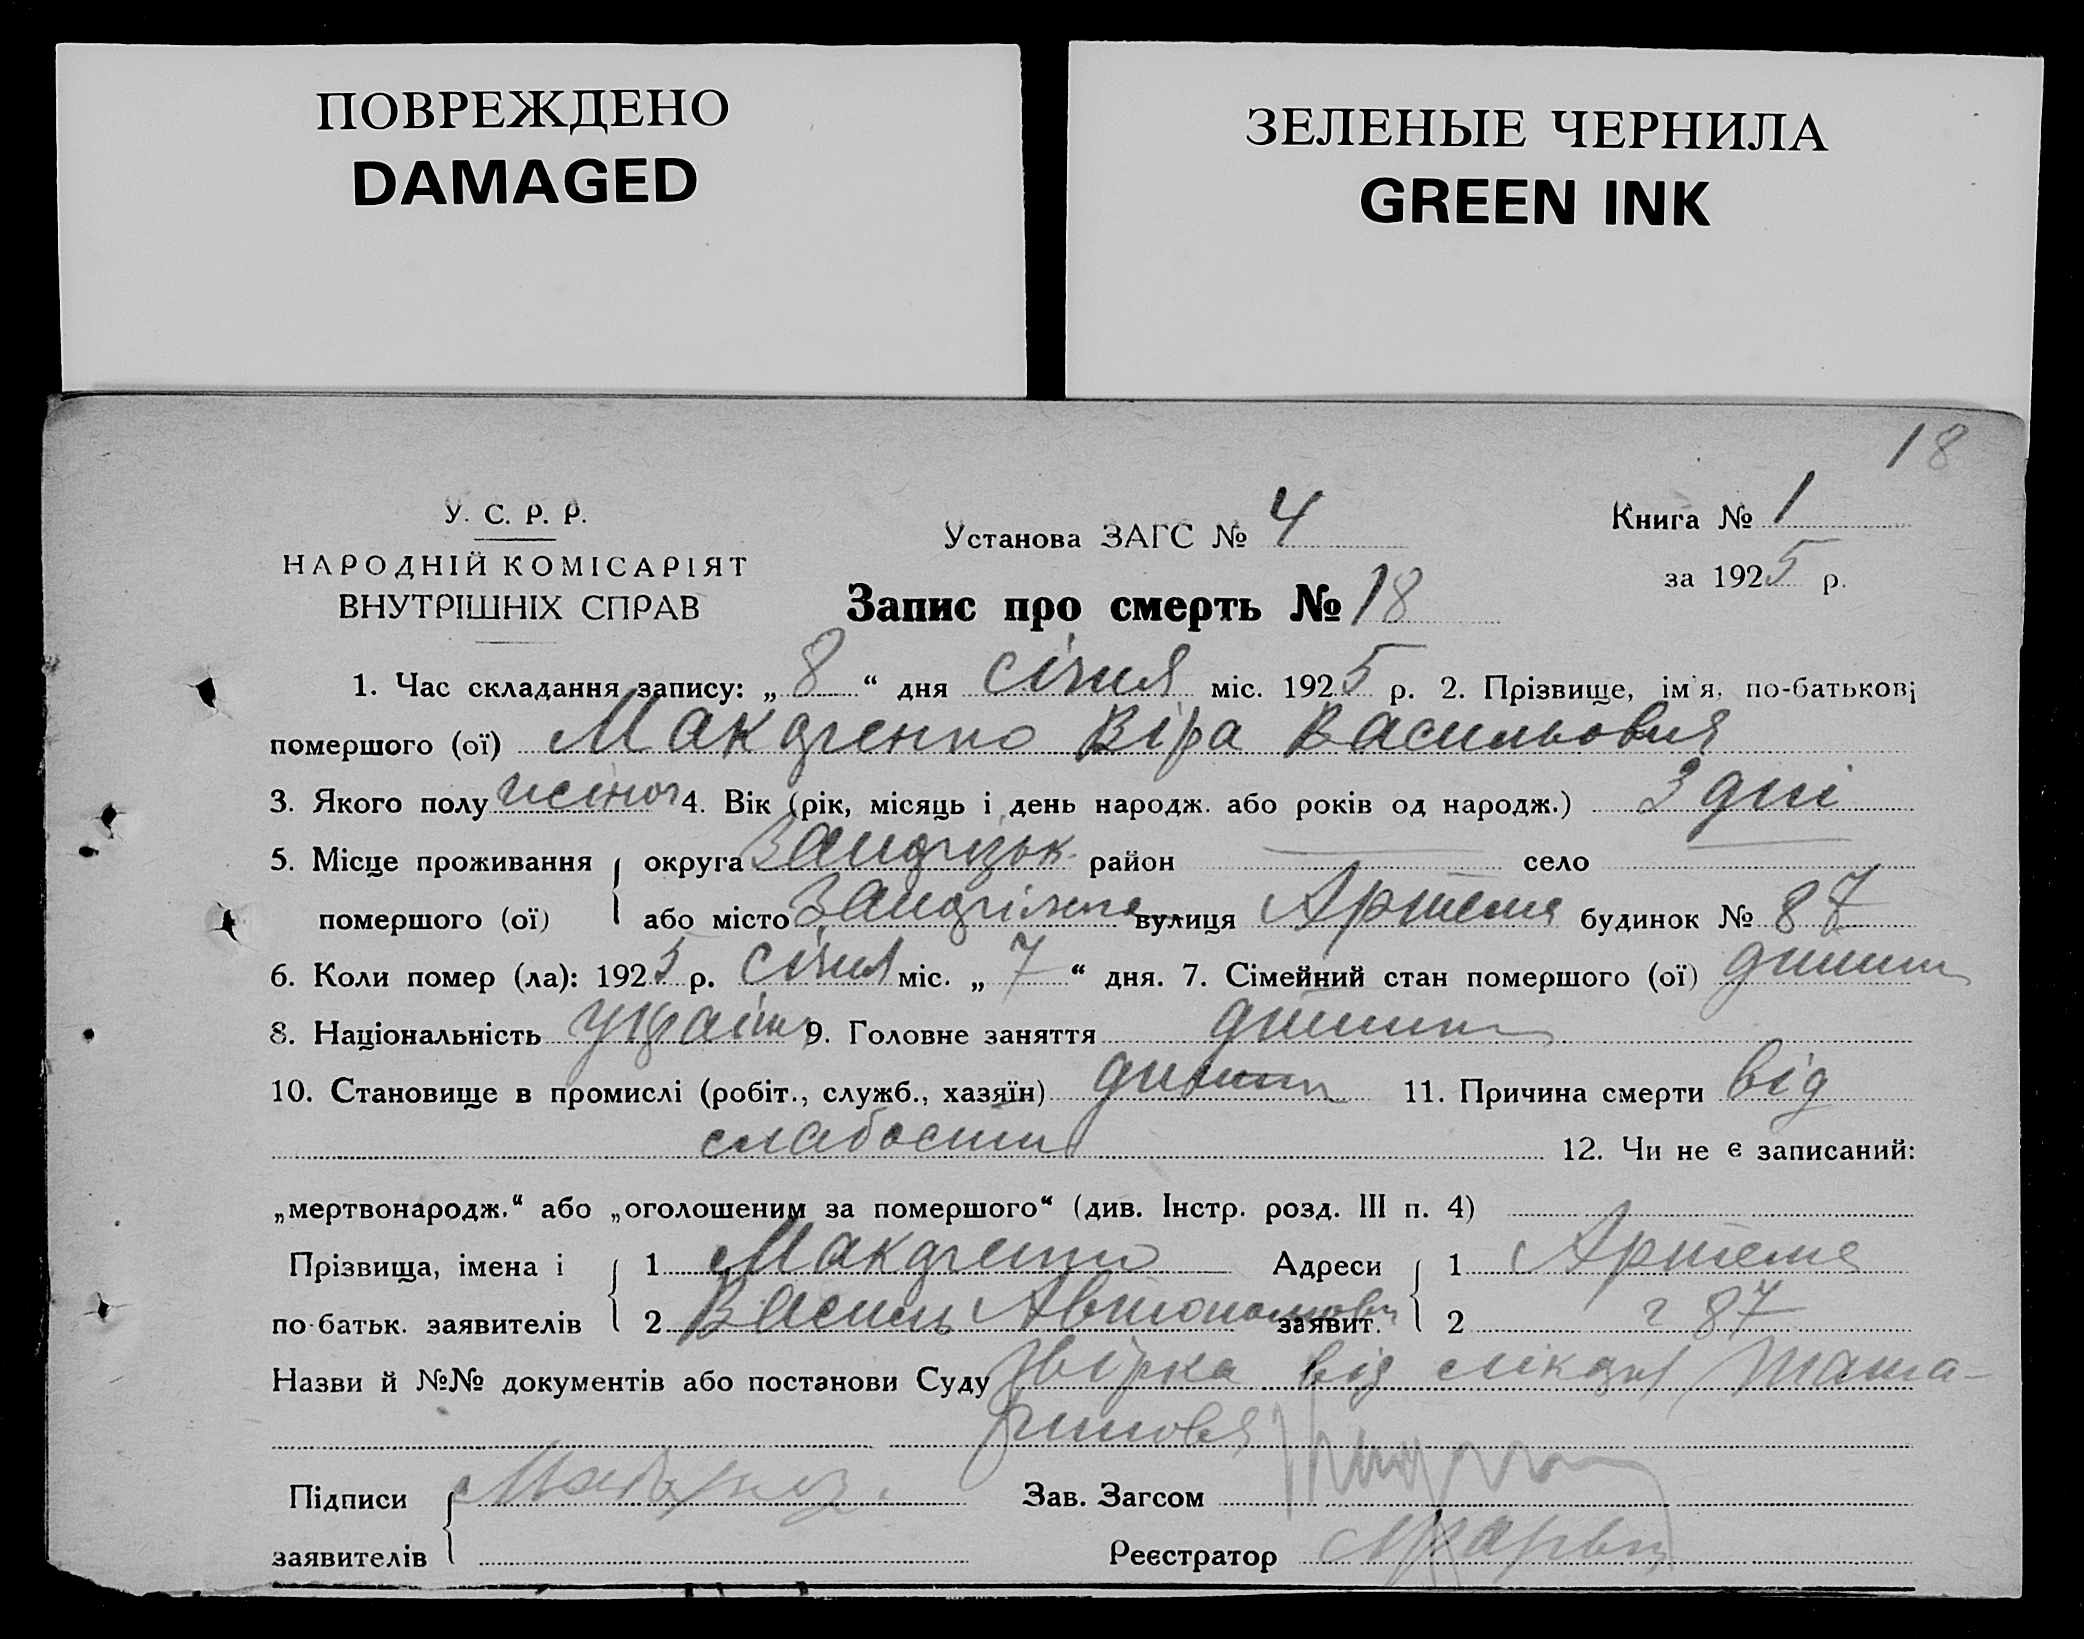 ПОВРЕЖДЕНО
DAMAGED
ЗЕЛЕНЫЕ ЧЕРНИЛА
GREEN INK
18
У. С. Р. Р.
НАРОДНІЙ КОМІСАРІЯТ
ВНУТРІШНІХ СПРАВ
Установа ЗАГС № 4
Книга № 1
за 1925 р.
Запис про смерть № 18
1. Час складання запису: „8“ дня січня міс. 1925 р. 2. Прізвище, ім'я, по-батькові
помершого (ої) Віра Васильовня
3. Якого полу жіноч 4. Вік (рік, місяць і день народж. або років од народж.) 3 дні
5. Місце проживання округа район село
помершого (ої) або місто вулиця Артема будинок № 87
6. Коли помер (ла): 1925 р. січня міс. „7“ дня. 7. Сімейний стан помершого (ої) дитина
8. Національність україн 9. Головне заняття дитина
10. Становище в промислі (робіт., служб., хазяїн) дитина 11. Причина смерти від
слабости 12. Чи не є записаний:
„мертвонародж.“ або „оголошеним за помершого“ (див. Інстр. розд. III п. 4)
Прізвища, імена і 1 Адреси 1 Артема
по-батьк. заявителів 2 Василь Автономович заявит. 2 87
Назви й №№ документів або постанови Суду від лікаря Тата-
ринова
Підписи Зав. Загсом
заявителів Реєстратор